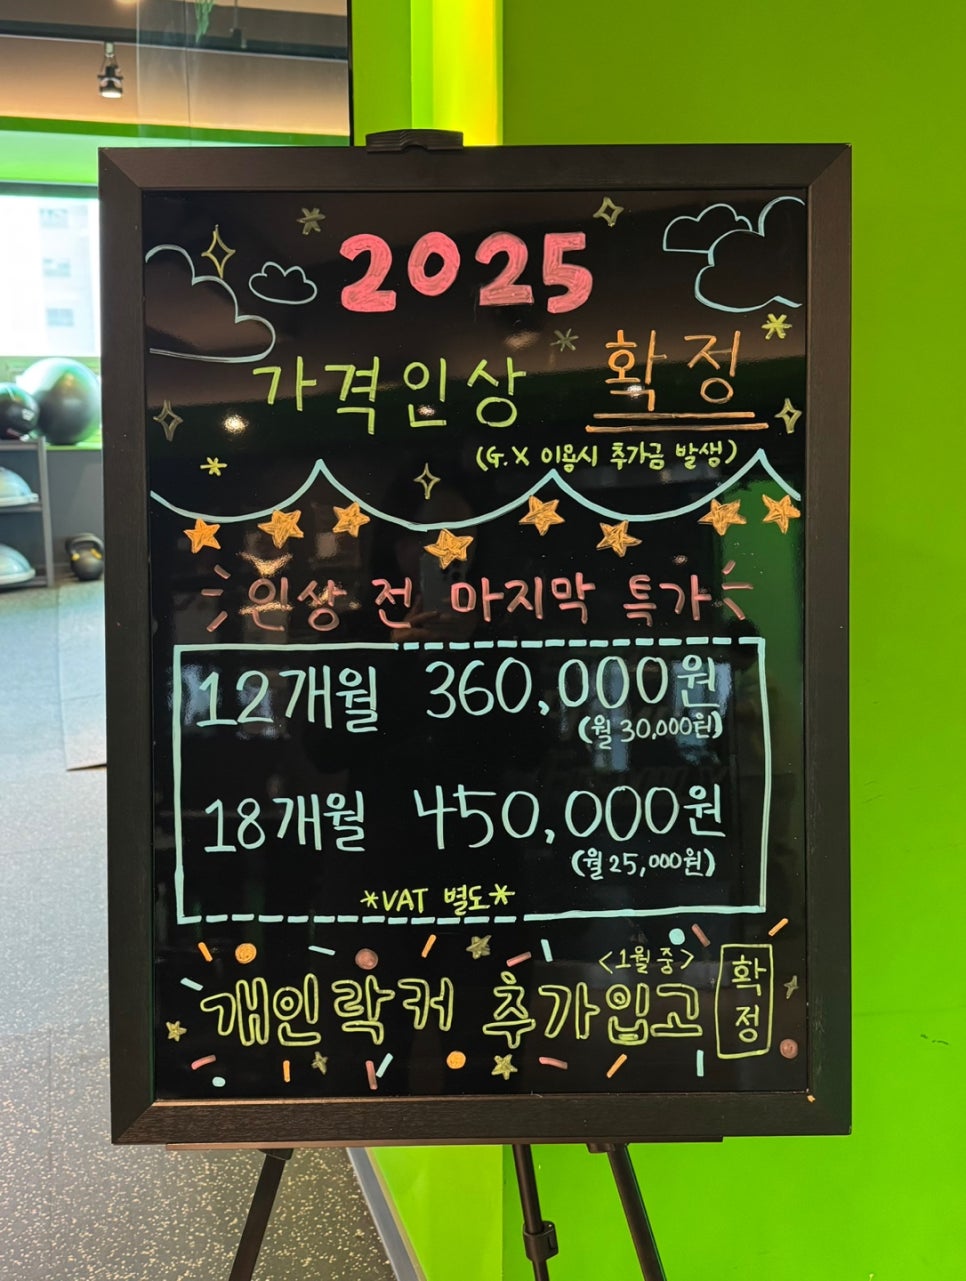 2025
가격인상 확정
(G.X 이용시 추가금 발생)
인상 전 마지막 특가
12개월 360,000원
(월 30,000원)
18개월 450,000원
(월 25,000원)
*VAT 별도*
<1월 중>
개인락커 추가입고 확정